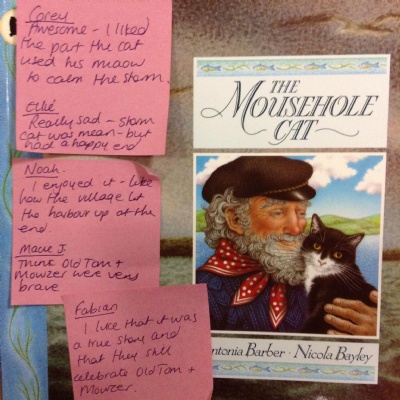 Corey
Awesome - I liked
the part the cat
used his miaow
to calm the storm.
Ellie
Really sad - storm
cat was mean - but
had a happy end
Noah.
I enjoyed it - like
how the village lit
the harbour up at the
end.
Macie J
Think Old Tom +
Mowzer were very
brave
Fabian
I like that it was
a true story and
that they still
celebrate Old Tom +
Mowzer.
THE
MOUSEHOLE
CAT
ntonia Barber · Nicola Bayley